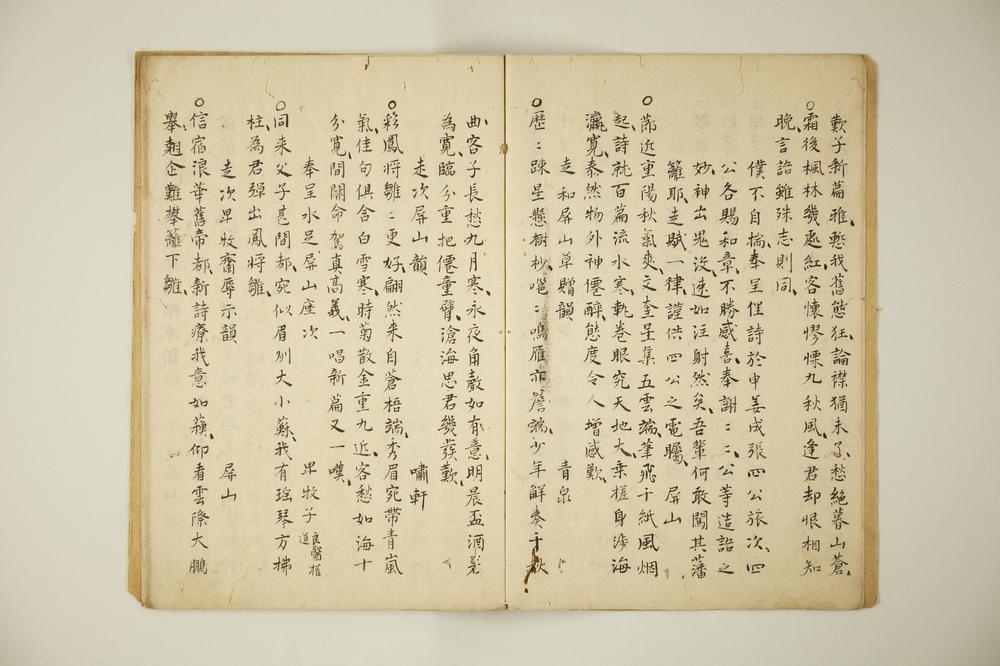 歎子新篇雅、慙我舊態狂、論襟猶未了、愁絕暮山蒼、
○霜後楓林幾處紅、客懷憀慄九秋風、逢君却恨相知
晚、言語雖殊志則同、
僕不自揣、奉呈俚詩於申姜成張四公旅次、四
公各賜和章、不勝感喜、奉謝〻〻、公等造語之
妙、神出鬼沒、速如注射然矣、吾輩何敢闖其藩
籬耶、走賦一律、謹供四公之電矚、 屏山
○節近重陽秋氣爽、文奎星集五雲端、筆飛千紙風烟
起、詩就百篇流水寒、執卷眼究天地大、乘槎身涉海
瀛寬、泰然物外神僊醉、態度令人增感歎、
走和屏山草贈韻 青泉
○歷〻踈星懸樹杪、嗈〻鳴雁亦簷端、少年解奏千秋
曲、客子長愁九月寒、永夜角聲如有意、明晨盃酒爲
為寬、臨分重把僊童臂、滄海思君幾發歎、
走次屏山韻 嘯軒
○彩鳳將雛〻更好、翩然来自蒼梧端、秀眉宛帶青嵐
氣、佳句俱含白雪寒、時菊散金重九近、客愁如海十
分寬、間關命駕真高義、一唱新篇又一嘆、
奉呈水足屏山座次 卑牧子良醫權道
○同来父子甚間都、宛似眉州大小蘇、我有瑤琴方拂
柱、為君彈出鳳將雛、
走次卑牧齋辱示韻 屏山
○信宿浪華舊帝都、新詩療我意如蘓、仰看雲際大鵬
舉、翹企難攀籬下雛、